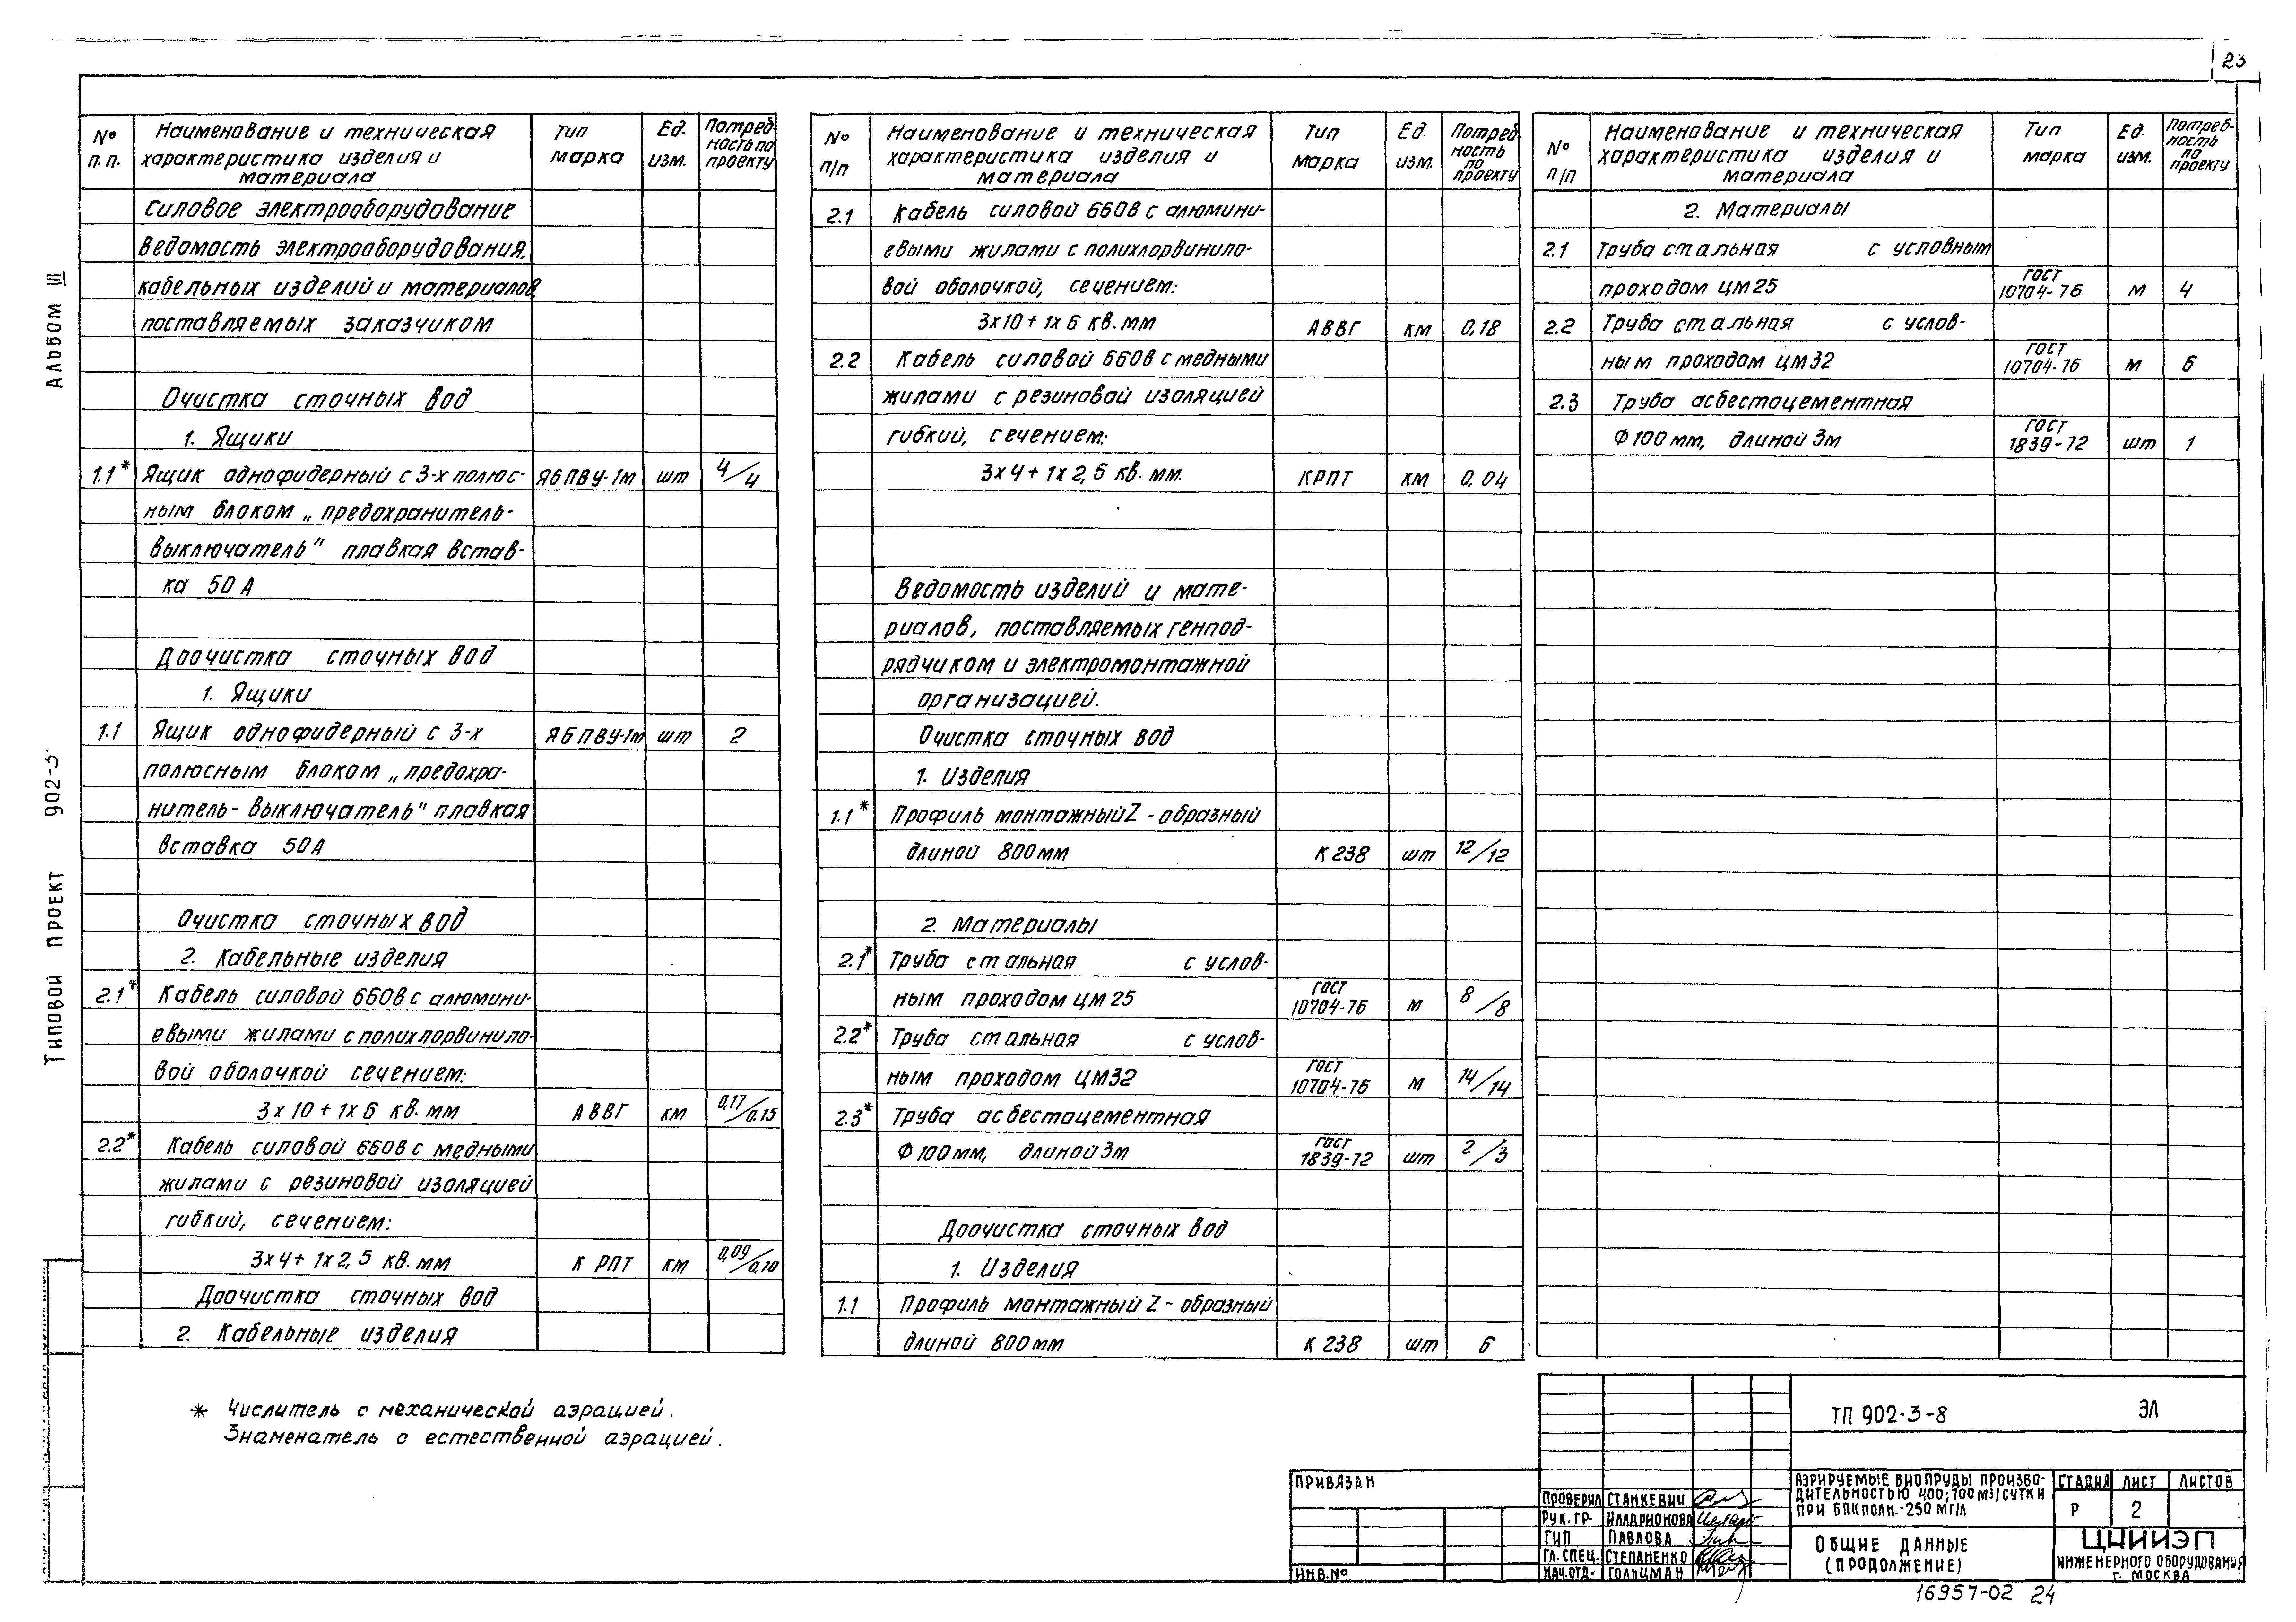 23
Альбом III
Типовой проект 902-3
№ п.п. Наименование и техническая характеристика изделия и материала Тип марка Ед. изм. Потребность по проекту
Силовое электрооборудование
Ведомость электрооборудования,
кабельных изделий и материалов,
поставляемых заказчиком
Очистка сточных вод
1. Ящики
1.1* Ящик однофидерный с 3-х полюс- ЯБПВУ-1м шт 4/4
ным блоком „предохранитель-
выключатель" плавкая встав-
ка 50 А
Доочистка сточных вод
1. Ящики
1.1 Ящик однофидерный с 3-х ЯБПВУ-1м шт 2
полюсным блоком „предохра-
нитель-выключатель" плавкая
вставка 50А
Очистка сточных вод
2. Кабельные изделия
2.1* Кабель силовой 660в с алюмини-
евыми жилами с полихлорвинило-
вой оболочкой сечением:
3х10+1х6 кв.мм АВВГ км 0,17/0,15
2.2* Кабель силовой 660в с медными
жилами с резиновой изоляцией
гибкий, сечением:
3х4+1х2,5 кв.мм КРПТ км 0,09/0,10
Доочистка сточных вод
2. Кабельные изделия
№ п/п Наименование и техническая характеристика изделия и материала Тип марка Ед. изм. Потребность по проекту
2.1 Кабель силовой 660в с алюмини-
евыми жилами с полихлорвинило-
вой оболочкой, сечением:
3х10+1х6 кв.мм АВВГ км 0,18
2.2 Кабель силовой 660в с медными
жилами с резиновой изоляцией
гибкий, сечением:
3х4+1х2,5 кв.мм. КРПТ км 0,04
Ведомость изделий и мате-
риалов, поставляемых генпод-
рядчиком и электромонтажной
организацией.
Очистка сточных вод
1. Изделия
1.1* Профиль монтажный Z-образный
длиной 800мм К238 шт 12/12
2. Материалы
2.1* Труба стальная с услов-
ным проходом цм 25 ГОСТ 10704-76 м 8/8
2.2* Труба стальная с услов-
ным проходом цм32 ГОСТ 10704-76 м 14/14
2.3* Труба асбестоцементная
Ф100мм, длиной 3м ГОСТ 1839-72 шт 2/3
Доочистка сточных вод
1. Изделия
1.1 Профиль монтажный Z-образный
длиной 800мм К238 шт 6
№ п/п Наименование и техническая характеристика изделия и материала Тип марка Ед. изм. Потребность по проекту
2. Материалы
2.1 Труба стальная с условным
проходом цм25 ГОСТ 10704-76 м 4
2.2 Труба стальная с услов-
ным проходом цм32 ГОСТ 10704-76 м 6
2.3 Труба асбестоцементная
Ф100мм, длиной 3м ГОСТ 1839-72 шт 1
* Числитель с механической аэрацией.
Знаменатель с естественной аэрацией.
Привязан
Инв.№
Проверил Станкевич
Рук.гр. Илларионова
ГИП Павлова
Гл.спец. Степаненко
Нач.отд. Гольцман
ТП 902-3-8 ЭЛ
Аэрируемые биопруды произво-
дительностью 400; 700 м3/сутки
при БПКполн.-250 мг/л
Стадия Лист Листов
Р 2
Общие данные
(продолжение)
ЦНИИЭП
инженерного оборудования
г. Москва
16957-02 24